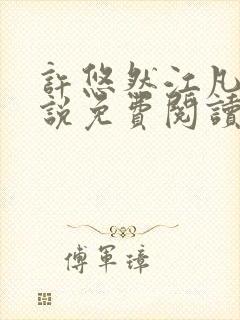 許悠然江凡
說免費閱讀
傅軍璋